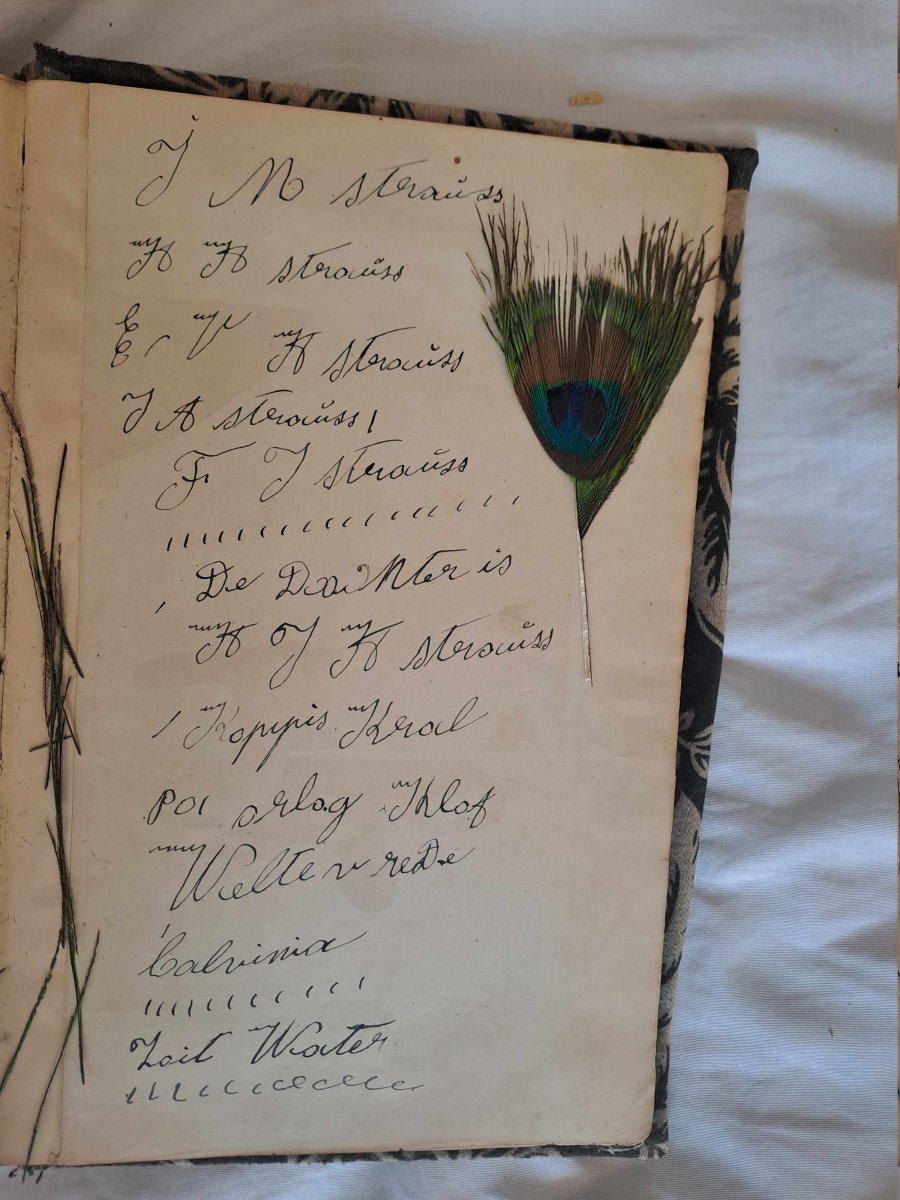 J M strauss
H H strauss
E, V H strauss
J A strauss,
F J strauss
De Dochter is
H J H strauss
Koppis Kral
por orlog Klof
Weltevrede
Calvinia
Zoit Water